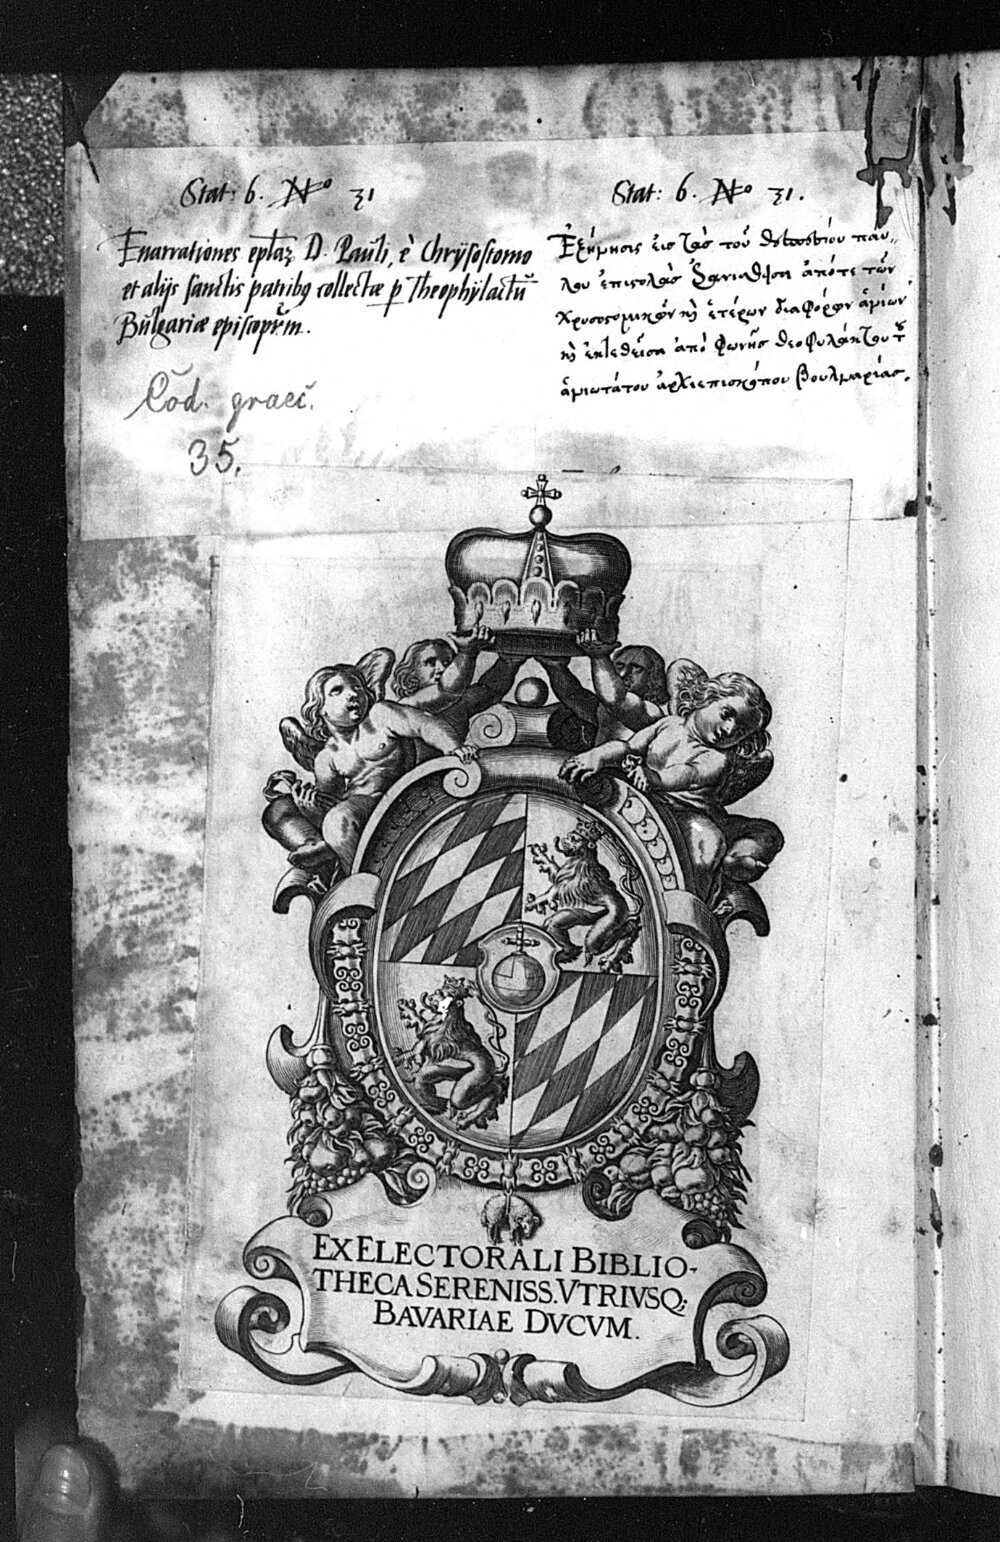 Stat: 6. No 31
Enarrationes eplaꝝ D. Pauli, è Chrÿsostomo
et alijs sanctis patribꝯ collectæ ꝑ Theophÿlactū
Bŭlgariæ episcopŭm.
Cŏd. graec̆.
35.
Stat: 6. No 31.
Ἐξήγησις εἰσ τὰσ τοῦ παύ-
λου ἐπιστολὰσ ἀπότε τῶν
Χρυσοστομικῶν κὴ ἑτέρων διαφόρων ἁγίων
κὴ ἐκτεθεῖσα ἀπὸ φωνῆσ θεοφυλάκτου τȣ͂
ἁγιωτάτου ἀρχιεπισκόπου βουλγαρίας.
EX ELECTORALI BIBLIO-
THECA SERENISS. VTRIVSQ;
BAVARIAE DVCVM.